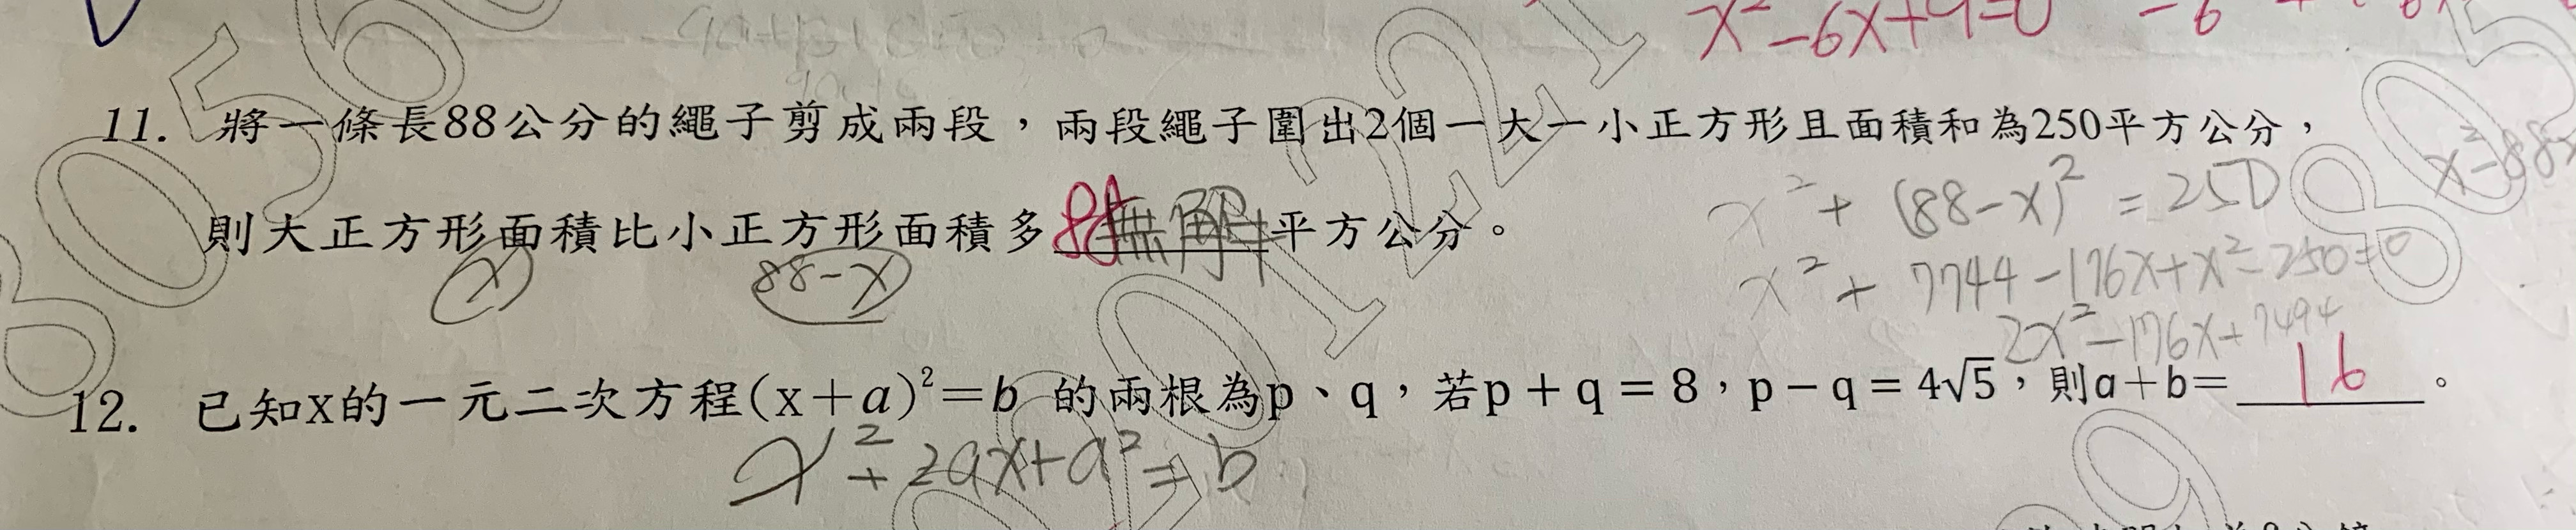 x²-6x+9=0
11. 將一條長88公分的繩子剪成兩段，兩段繩子圍出2個一大一小正方形且面積和為250平方公分，
x²-88x
x²+(88-x)²=250
則大正方形面積比小正方形面積多88無解平方公分。
x 88-x
x²+7744-176x+x²-250=0
2x²-176x+7494
12. 已知x的一元二次方程(x+a)²=b 的兩根為p、q，若p+q=8，p-q=4√5，則a+b=16。
x²+2ax+a²=b